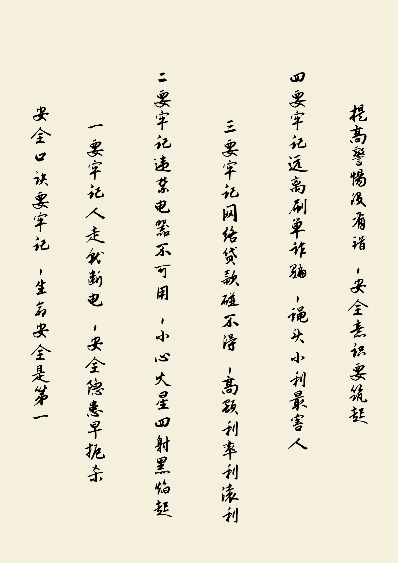 安全口诀要牢记，生命安全是第一
一要牢记人走就断电，安全隐患早扼杀
二要牢记违禁电器不可用，小心火星四射黑焰起
三要牢记网络贷款碰不得，高额利率利滚利
四要牢记远离刷单诈骗，蝇头小利最害人
提高警惕没有错，安全意识要筑起